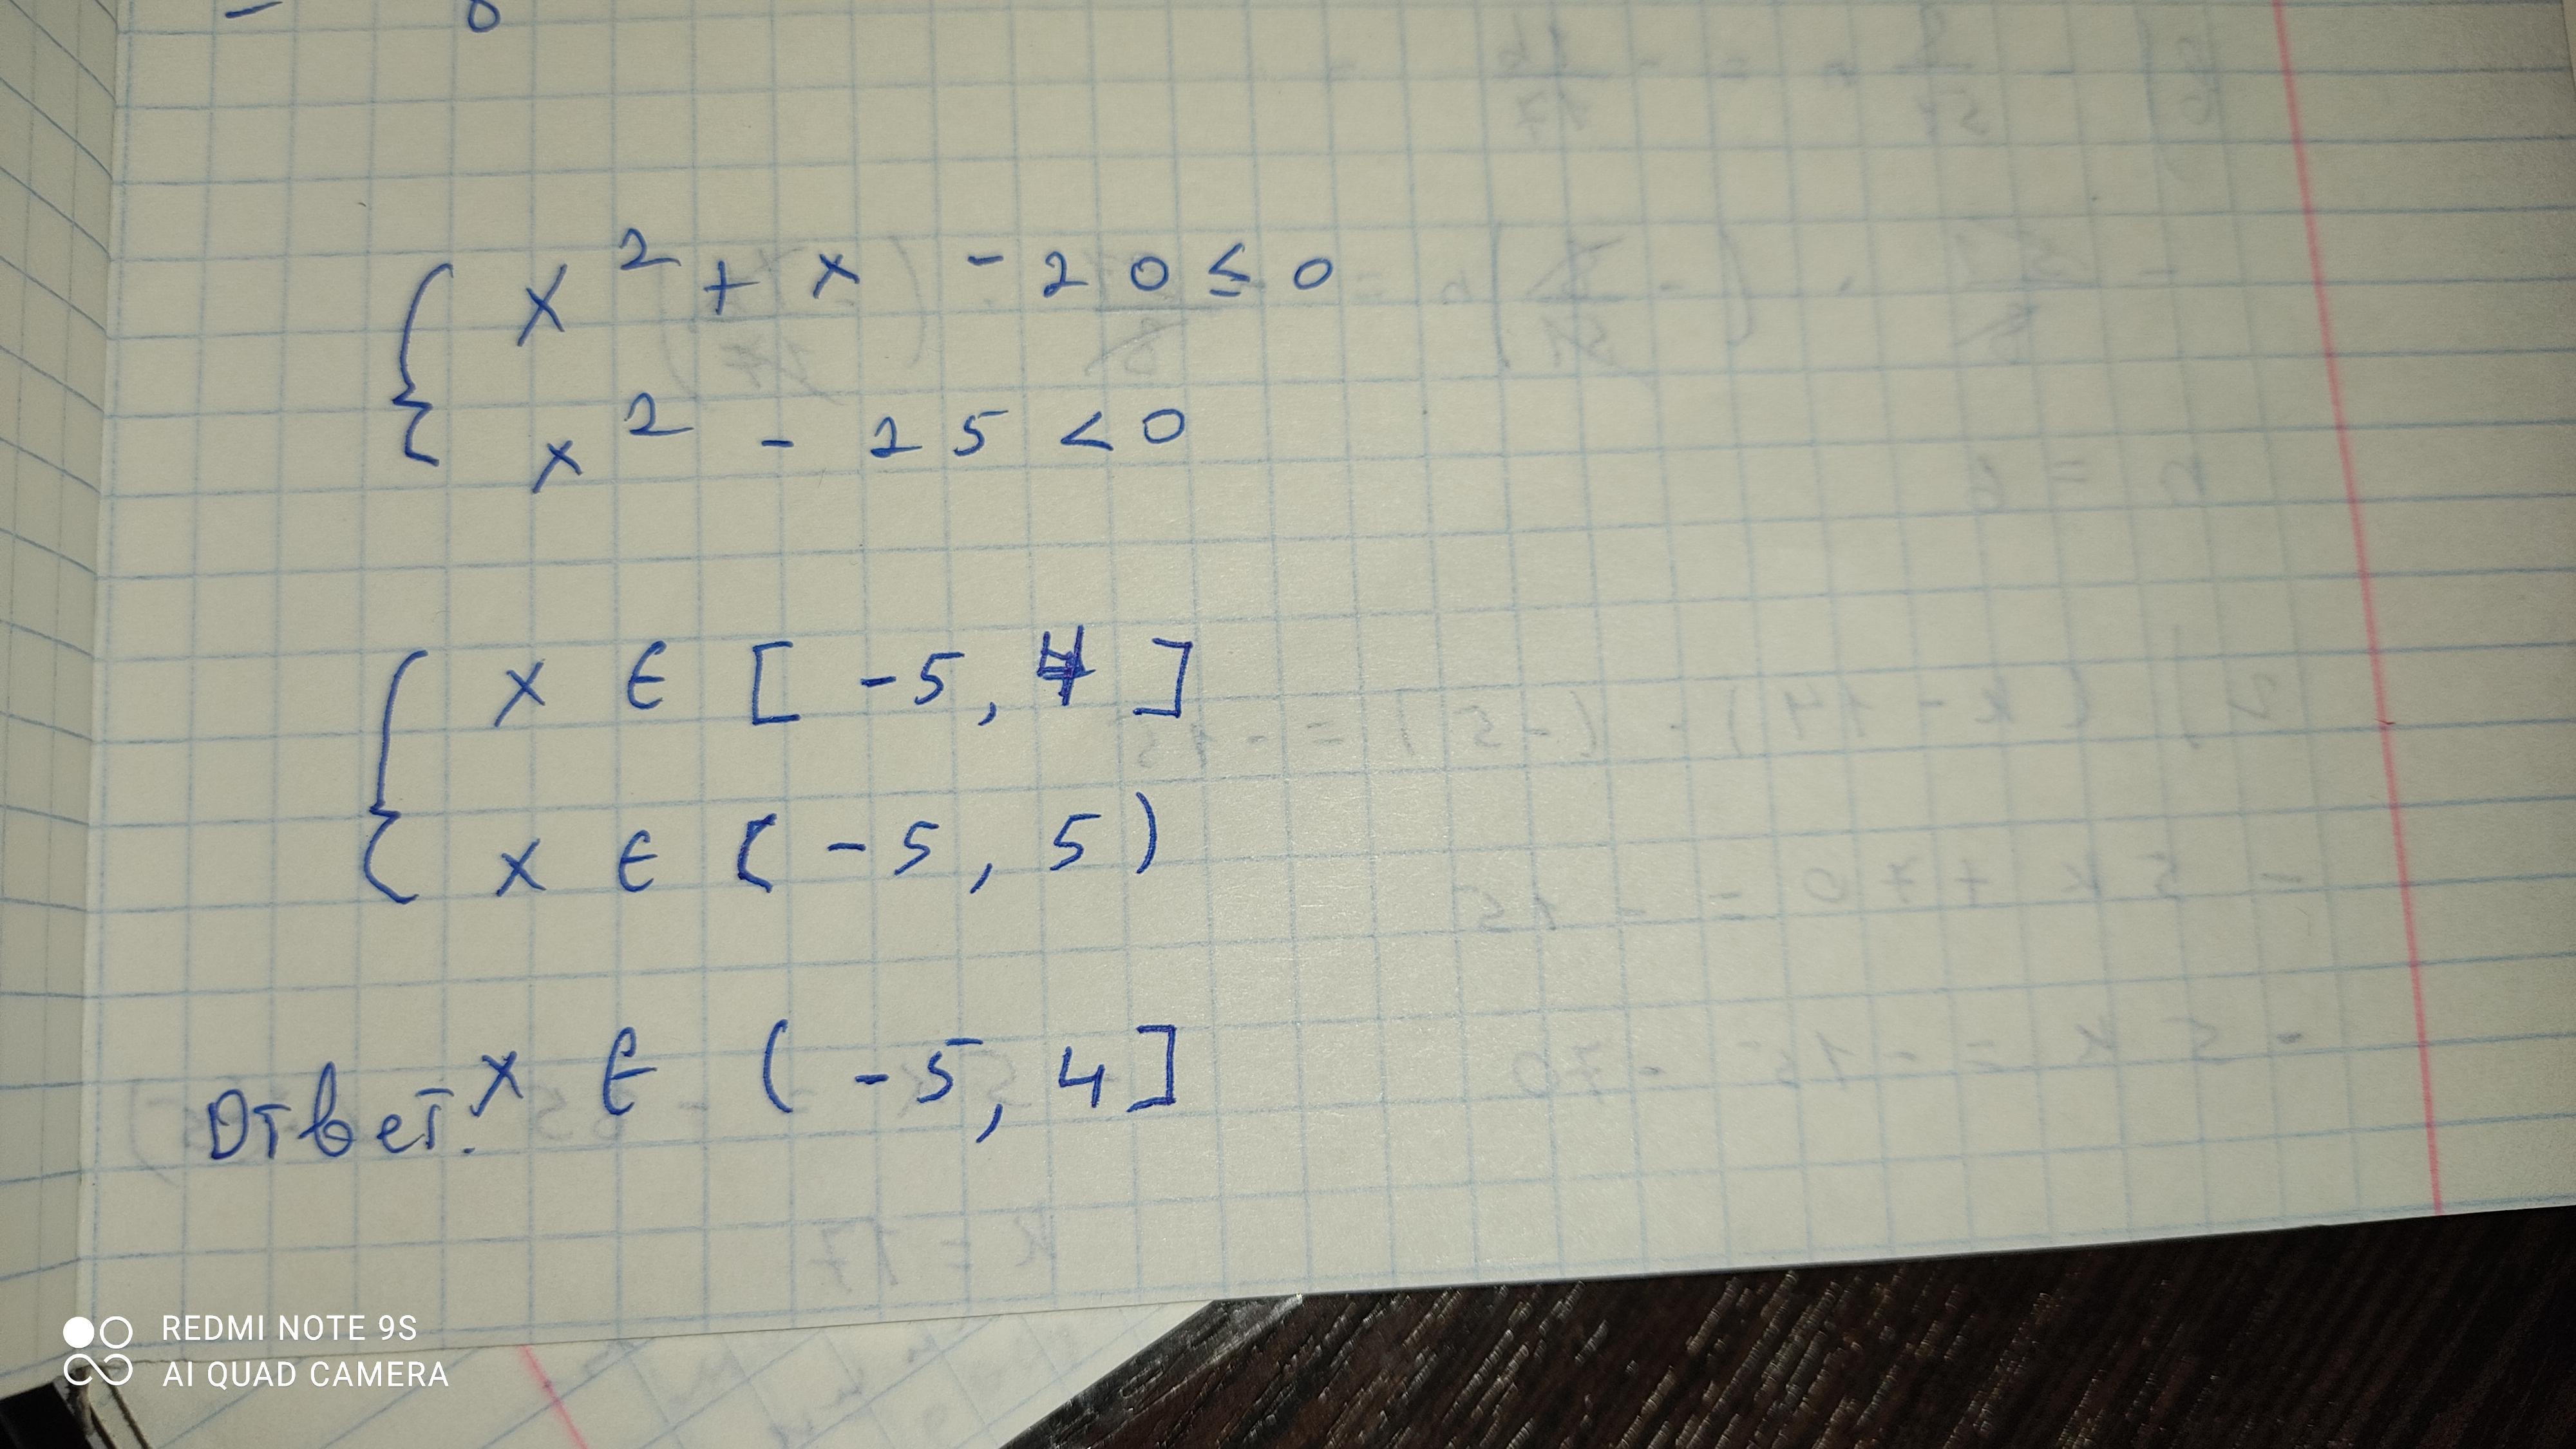 x² + x - 20 ≤ 0
x² - 25 < 0
x ∈ [-5, 4]
x ∈ (-5, 5)
Ответ. x ∈ (-5, 4]
REDMI NOTE 9S
AI QUAD CAMERA